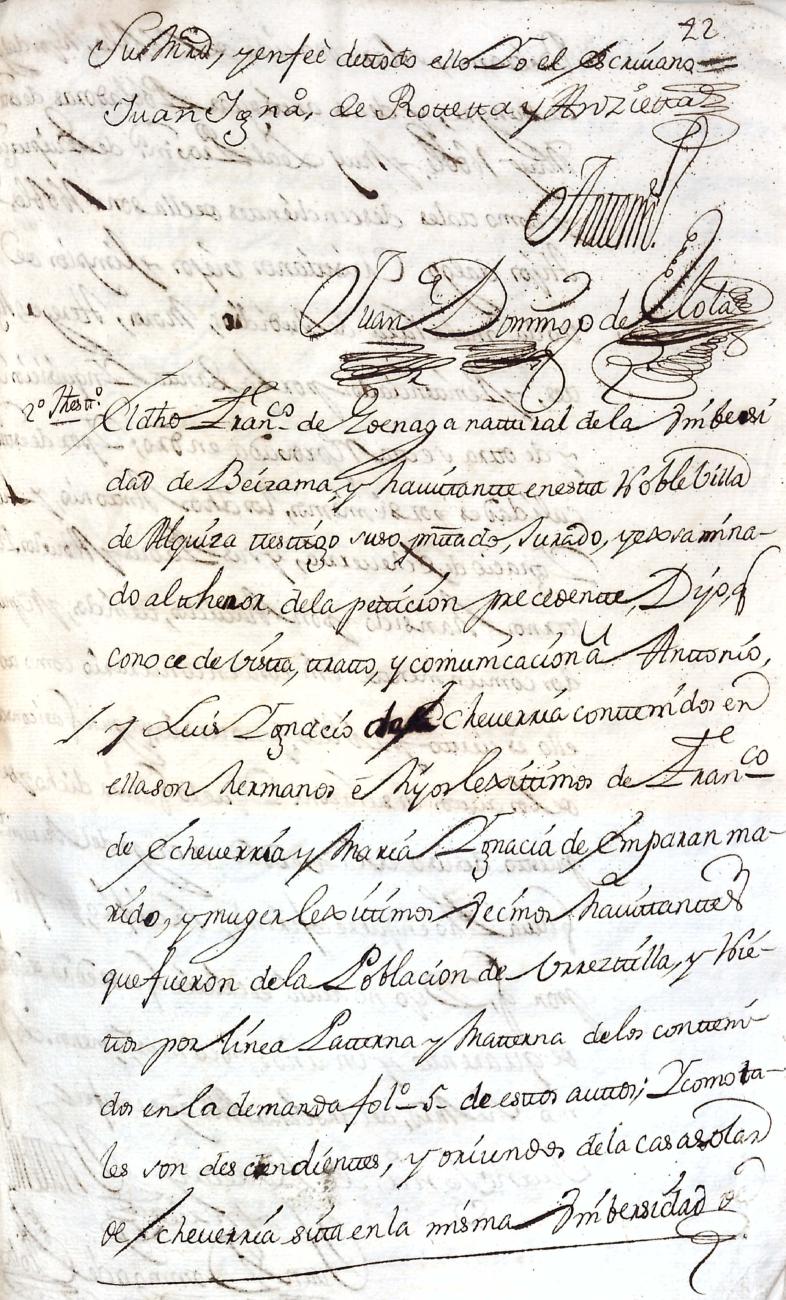 42
Su Mrd, y en feè de ttodo ello Yo el escriuano=
Juan Ignaº, de Rottetta y Anzietta
Antemi.
Juan Domingo de
2º Thesttº. El dho Franco de Goenaga nattural de la Vnibersi
dad de Beizama, y hauittantte en estta Noble Villa
de Alquiza ttesttigo suso, Jurado, y exsamina-
do al thenor de la petticion precedentte, Dijo, q
conoce de Vistta, ttratto, y comunicacion a Anttonio,
y Luis Ignacio de Echeuerria conttenidos en
ella son hermanos è hijos lexittimos de Franco
de Echeuerria y Maria Ignacia de Emparan ma-
rido, y muger lexittimos Vecinos hauittanttes
que fueron de la Poblacion de Vrrezttilla, y Nie-
ttos por linea Patterna y Matterna de los contteni-
dos en la demanda folº 5 de esttos auttos; Y como tta-
les son descendienttes, y oriundos de la casa solar
de Echeuerria sitta en la misma Vnibersidad d